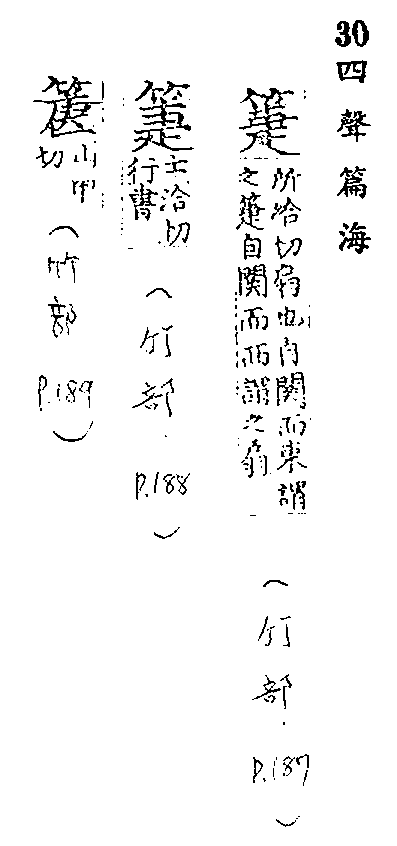 30四聲篇海
箑
所洽切扇也自関而東謂
之箑自関而西謂之扇
(竹部.P.187)
士洽切
行書
(竹部.P.188)
山甲
切
(竹部P.189)